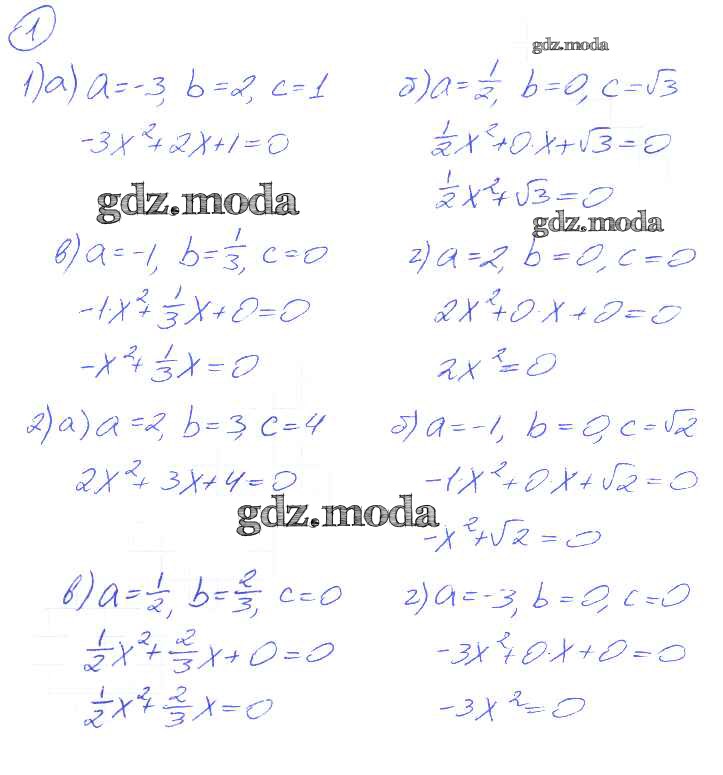 1
gdz.moda
1) а) a=-3, b=2, c=1
-3x²+2x+1=0
б) a=1/2, b=0, c=√3
1/2x²+0·x+√3=0
1/2x²+√3=0
gdz.moda
gdz.moda
в) a=-1, b=1/3, c=0
-1·x²+1/3x+0=0
-x²+1/3x=0
г) a=2, b=0, c=0
2x²+0·x+0=0
2x²=0
2) а) a=2, b=3, c=4
2x²+3x+4=0
б) a=-1, b=0, c=√2
-1·x²+0·x+√2=0
-x²+√2=0
gdz.moda
в) a=1/2, b=2/3, c=0
1/2x²+2/3x+0=0
1/2x²+2/3x=0
г) a=-3, b=0, c=0
-3x²+0·x+0=0
-3x²=0